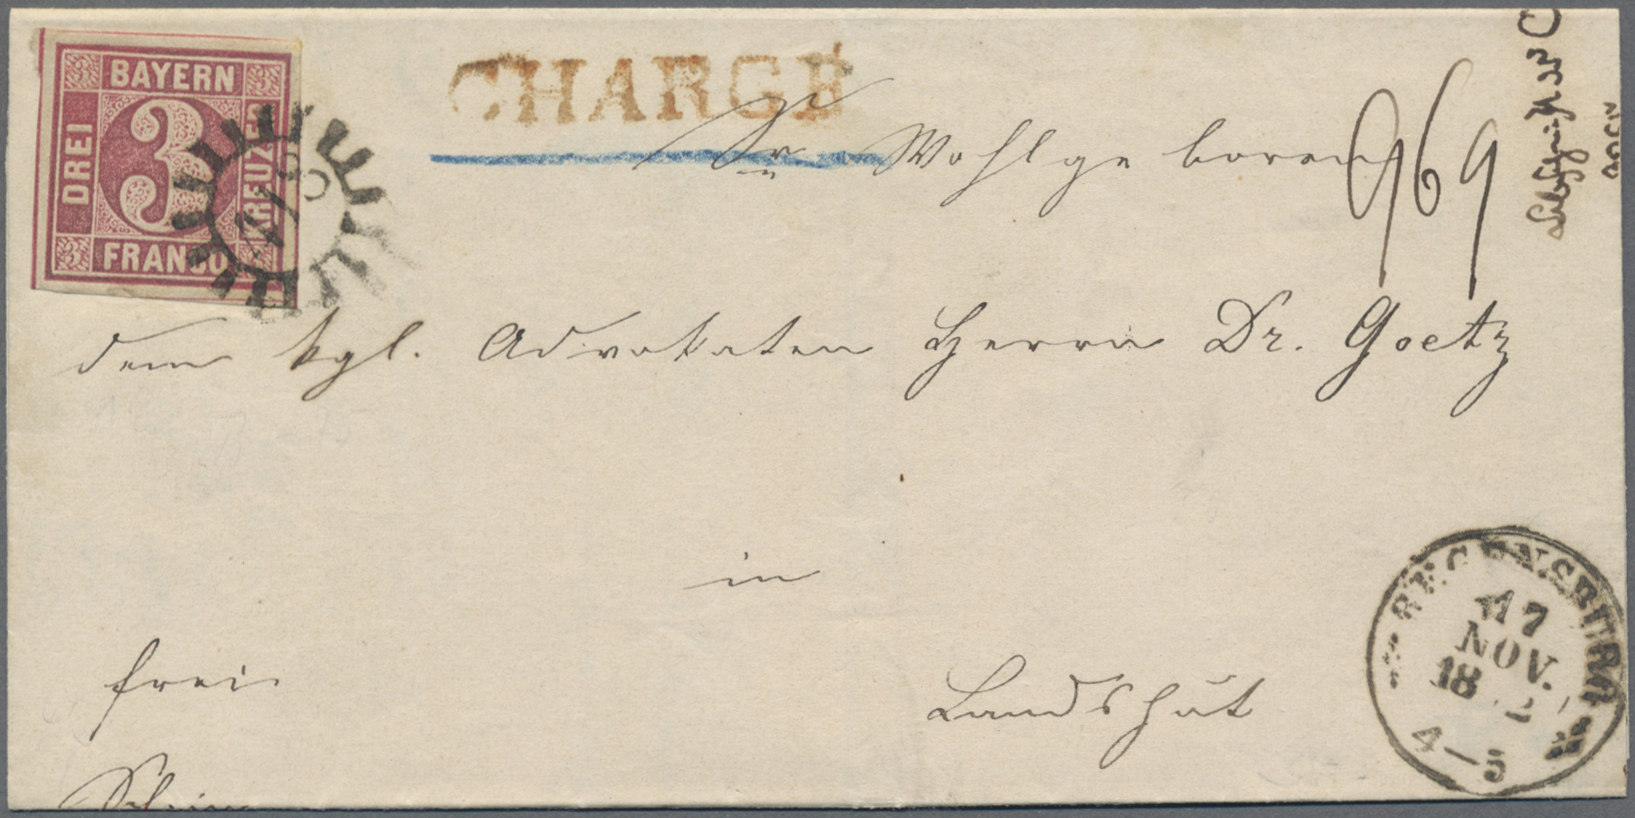 BAYERN
DREI
3
KREUZER
FRANCO
CHARGÉ
Sr Wohlgeboren
969
dem kgl. Advokaten Herrn Dr. Goetz
in
frei
Landshut
Schein
REGENSBURG
17
NOV.
18
4-5